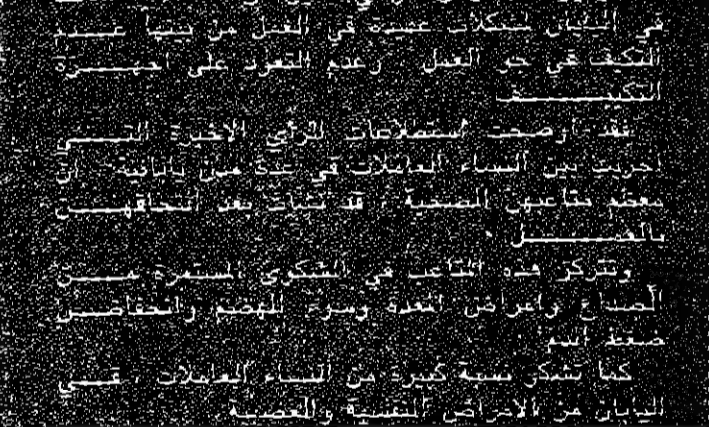 في اليابان مشكلات عديدة في العمل من بينها عدم
التكيف في جو العمل وعدم التعود على اجهزة
التكييف
فقد اوضحت استطلاعات للرأي الاخيرة التي
اجريت بين النساء العاملات في عدة مدن يابانية ان
معظم متاعبهن الصحية ، قد نشأت بعد التحاقهن
بالعمل .
وتتركز هذه المتاعب في الشكوى المستمرة من
الصداع وامراض المعدة وسوء الهضم وانخفاض
ضغط الدم .
كما تشكو نسبة كبيرة من النساء العاملات ، في
اليابان من الامراض النفسية والعصبية